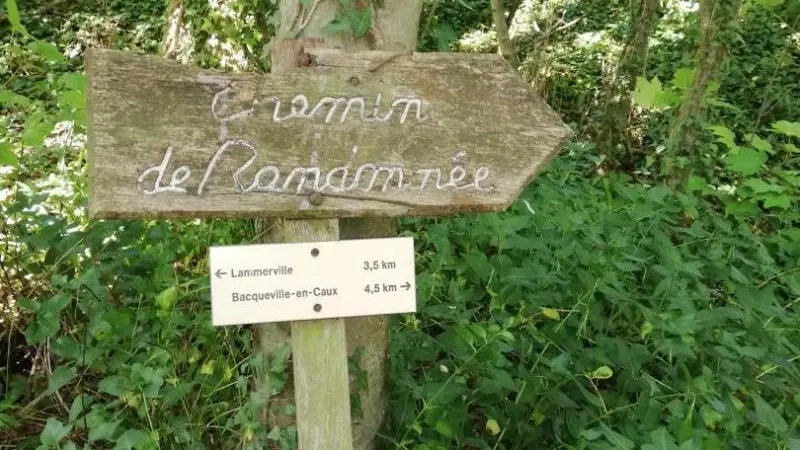 Chemin
de Randonnée
← Lammerville 3,5 km
Bacqueville-en-Caux 4,5 km →